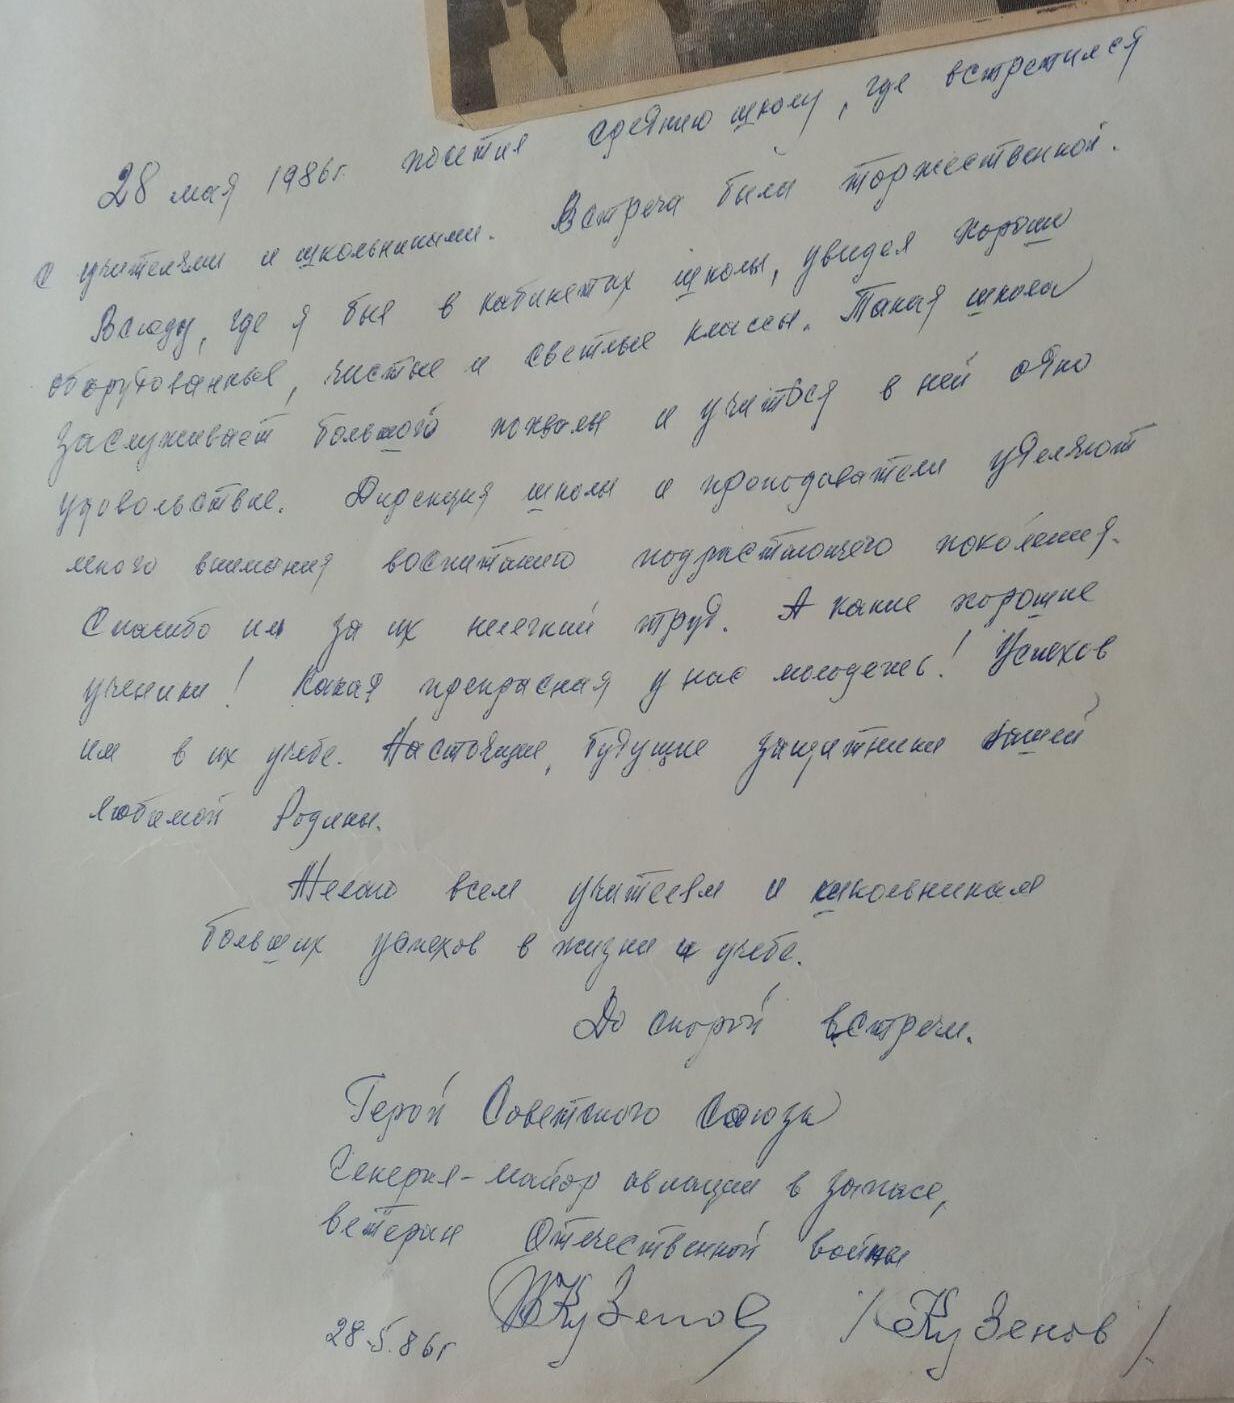 28 мая 1986г. посетил среднюю школу, где встретился
с учителями и школьниками. Встреча была торжественной.
Всюду, где я был в кабинетах школы, увидел хорошо
оборудованные, чистые и светлые классы. Такая школа
заслуживает большого похвалы и учиться в ней одно
удовольствие. Дирекция школы и преподаватели уделяют
много внимания воспитанию подрастающего поколения.
Спасибо им за их нелегкий труд. А какие хорошие
ученики! Какая прекрасная у нас молодежь! Успехов
им в их учебе. Настоящие, будущие защитники нашей
любимой Родины.
Желаю всем учителям и школьникам
больших успехов в жизни и учебе.
До скорой встречи.
Герой Советского Союза
Генерал-майор авиации в запасе,
ветеран Отечественной войны
Кузенов /Кузенов/
28.5.86г